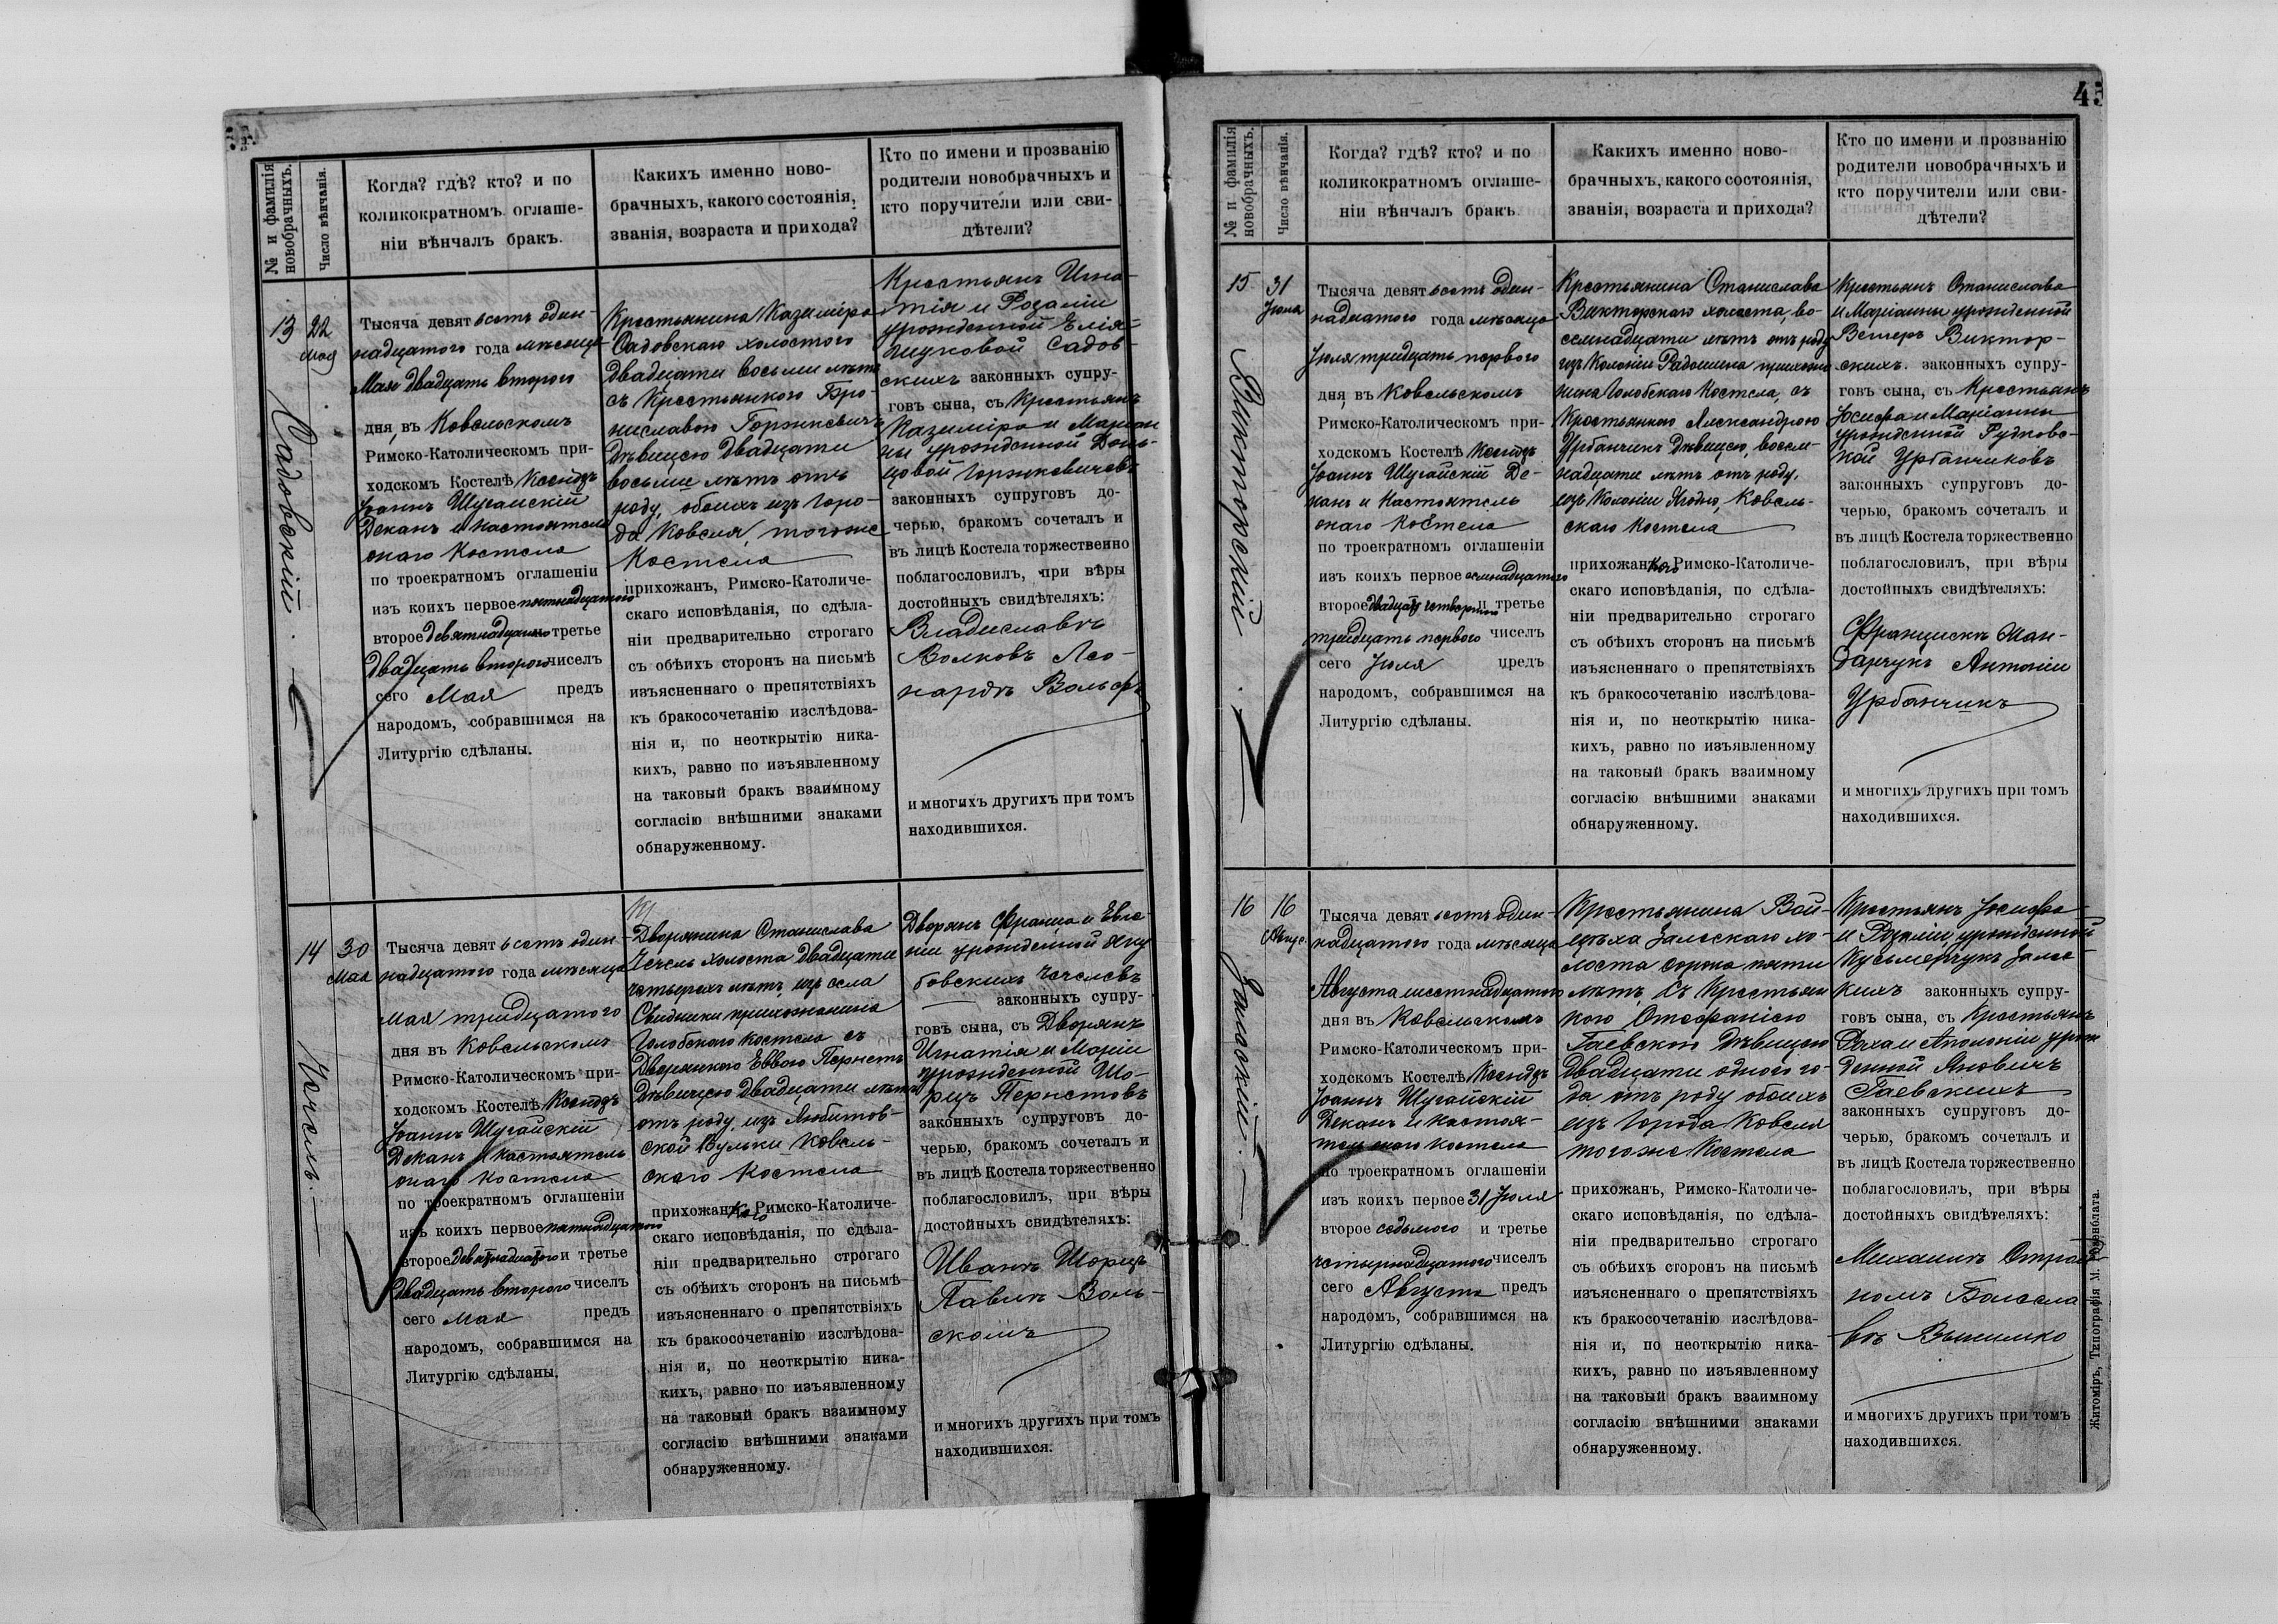 № и фамилія
новобрачныхъ.
Число вѣнчанія.
Когда? гдѣ? кто? и по
коликократномъ оглаше-
ніи вѣнчалъ бракъ.
Какихъ именно ново-
брачныхъ, какого состоянія,
званія, возраста и прихода?
Кто по имени и прозванію
родители новобрачныхъ и
кто поручители или сви-
дѣтели?
13
22
Мая
Садовскій.
Тысяча девятьсотъ один-
надцатого года мѣсяца
Мая двадцать второго
дня, въ Ковельскомъ
Римско-Католическомъ при-
ходскомъ Костелѣ Ксендзъ
Іоаннъ Шугайскій
Деканъ и настоятель
онаго Костела
по троекратномъ оглашеніи
изъ коихъ первое пятнадцатого
второе девятнадцатого третье
двадцать второго чиселъ
сего Мая предъ
народомъ, собравшимся на
Литургію сдѣланы.
Крестьянина Казиміра
Садовскаго холостого
двадцати восьми лѣтъ
съ Крестьянкою Бро-
ниславою Горжкевичъ
Дѣвицею двадцати
восьми лѣтъ отъ
роду, обоихъ изъ горо-
да Ковеля, тогоже
Костела
прихожанъ, Римско-Католиче-
скаго исповѣданія, по сдѣла-
ніи предварительно строгаго
съ обѣихъ сторонъ на письмѣ
изъясненнаго о препятствіяхъ
къ бракосочетанію изслѣдова-
нія и, по неоткрытію ника-
кихъ, равно по изъявленному
на таковый бракъ взаимному
согласію внѣшними знаками
обнаруженному.
Крестьянъ Игна-
тія и Розаліи
урожденной
Садов-
скихъ законныхъ супру-
говъ сына, съ Крестьянъ
Казиміра и Маріан
ны урожденной
Горжкевичевъ
законныхъ супруговъ до-
черью, бракомъ сочеталъ и
въ лицѣ Костела торжественно
поблагословилъ, при вѣры
достойныхъ свидѣтеляхъ:
Владиславѣ
Волковъ Лео-
нардѣ Вольфъ
и многихъ другихъ при томъ
находившихся.
14
30
Мая
Чечель.
Тысяча девятьсотъ один-
надцатого года мѣсяца
мая тридцатого
дня въ Ковельскомъ
Римско-Католическомъ при-
ходскомъ Костелѣ Ксендзъ
Іоаннъ Шугайскій
Деканъ и настоятель
онаго Костела
по троекратномъ оглашеніи
изъ коихъ первое пятнадцатого
второе девятнадцатого и третье
двадцать второго чиселъ
сего мая предъ
народомъ, собравшимся на
Литургію сдѣланы.
Дворянина Станислава
Чечель холоста двадцати
четырехъ лѣтъ, изъ села
Свидники прихожанина
Голобскаго костела съ
Дворянкою Еввою Пернетъ
Дѣвицею двадцати лѣтъ
отъ роду, изъ Любитов-
ской Вульки Ковель-
скаго Костела
прихожанкою Римско-Католиче-
скаго исповѣданія, по сдѣла-
ніи предварительно строгаго
съ обѣихъ сторонъ на письмѣ
изъясненнаго о препятствіяхъ
къ бракосочетанію изслѣдова-
нія и, по неоткрытію ника-
кихъ, равно по изъявленному
на таковый бракъ взаимному
согласію внѣшними знаками
обнаруженному.
Дворянъ Франца и Евге-
ніи урожденной Яку
бовскихъ Чечелевъ
законныхъ супру-
говъ сына, съ Дворянъ
Игнатія и Маріи
урожденной Шо-
рцъ Пернетовъ
законныхъ супруговъ до-
черью, бракомъ сочеталъ и
въ лицѣ Костела торжественно
поблагословилъ, при вѣры
достойныхъ свидѣтеляхъ:
Иванѣ Шорцъ
Павлѣ Воль-
скомъ
и многихъ другихъ при томъ
находившихся.
45
№ и фамилія
новобрачныхъ.
Число вѣнчанія.
Когда? гдѣ? кто? и по
коликократномъ оглаше-
ніи вѣнчалъ бракъ.
Какихъ именно ново-
брачныхъ, какого состоянія,
званія, возраста и прихода?
Кто по имени и прозванію
родители новобрачныхъ и
кто поручители или сви-
дѣтели?
15
31
Іюля
Викторскій.
Тысяча девятьсотъ один-
надцатого года мѣсяца
Іюля тридцать первого
дня, въ Ковельскомъ
Римско-Католическомъ при-
ходскомъ Костелѣ Ксендзъ
Іоаннъ Шугайскій Де-
канъ и Настоятель
онаго Костела
по троекратномъ оглашеніи
изъ коихъ первое семнадцатого
второе двадцать четвертого и третье
тридцать первого чиселъ
сего Іюля предъ
народомъ, собравшимся на
Литургію сдѣланы.
Крестьянина Станислава
Викторскаго холоста, во-
семнадцати лѣтъ отъ роду
изъ Колоніи Радошина прихожа
нина Голобскаго Костела, съ
Крестьянкою Александрою
Урбанчикъ Дѣвицею, восем-
надцати лѣтъ отъ роду,
изъ Колоніи Ягодно, Ковель-
скаго Костела
прихожанкою Римско-Католиче-
скаго исповѣданія, по сдѣла-
ніи предварительно строгаго
съ обѣихъ сторонъ на письмѣ
изъясненнаго о препятствіяхъ
къ бракосочетанію изслѣдова-
нія и, по неоткрытію ника-
кихъ, равно по изъявленному
на таковый бракъ взаимному
согласію внѣшними знаками
обнаруженному.
Крестьянъ Станислава
и Маріанны урожденной
Ветеръ Виктор-
скихъ. законныхъ супру-
говъ сына, съ Крестьянъ
Іосифа и Маріанны
урожденной Рудковс-
кой Урбанчиковъ
законныхъ супруговъ до-
черью, бракомъ сочеталъ и
въ лицѣ Костела торжественно
поблагословилъ, при вѣры
достойныхъ свидѣтеляхъ:
Францискѣ Ман-
дарчукъ Антоніи
Урбанчикъ
и многихъ другихъ при томъ
находившихся.
16
16
Авгус.
Залескій.
Тысяча девятьсотъ один-
надцатого года мѣсяца
Августа шестнадцатого
дня въ Ковельскомъ
Римско-Католическомъ при-
ходскомъ Костелѣ Ксендзъ
Іоаннъ Шугайскій
Деканъ и настоя-
тель онаго костела
по троекратномъ оглашеніи
изъ коихъ первое 31 Іюля
второе седьмого и третье
четырнадцатого чиселъ
сего Августа предъ
народомъ, собравшимся на
Литургію сдѣланы.
Крестьянина Вой-
цѣха Залескаго хо-
лоста сорока пяти
лѣтъ, съ Крестьян
кою Стефаніею
Гаевскою Дѣвицею
двадцати одного го-
да отъ роду обоихъ
изъ города Ковеля
тогоже Костела
прихожанъ, Римско-Католиче-
скаго исповѣданія, по сдѣла-
ніи предварительно строгаго
съ обѣихъ сторонъ на письмѣ
изъясненнаго о препятствіяхъ
къ бракосочетанію изслѣдова-
нія и, по неоткрытію ника-
кихъ, равно по изъявленному
на таковый бракъ взаимному
согласію внѣшними знаками
обнаруженному.
Крестьянъ Іосифа
и Розаліи урожденной
Кусьмерчукъ Залес-
кихъ законныхъ супру-
говъ сына, съ Крестьянъ
и Аполоніи урож
денной Яновичъ
Гаевскихъ
законныхъ супруговъ до-
черью, бракомъ сочеталъ и
въ лицѣ Костела торжественно
поблагословилъ, при вѣры
достойныхъ свидѣтеляхъ:
Михаилѣ
Болесла
вѣ
и многихъ другихъ при томъ
находившихся.
Житоміръ, Типографія М. Розенблата.